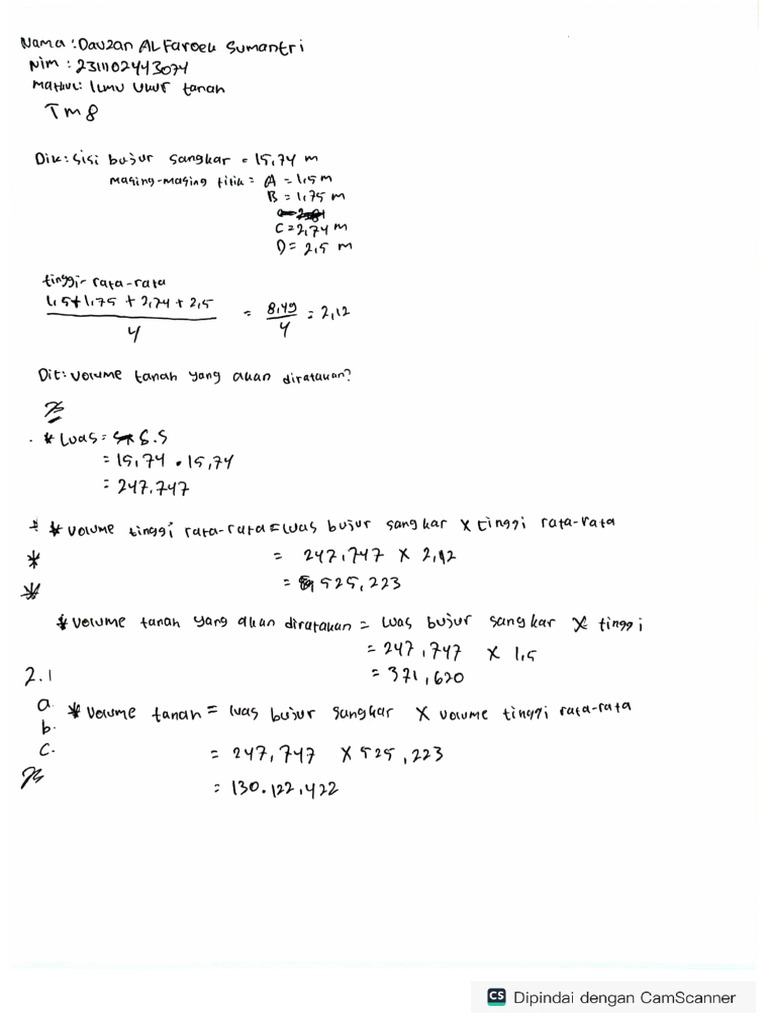 Nama : Dauzan AL Faroek Sumantri
Nim : 2311102443074
Matkul: Ilmu Ukur tanah
Tm 8
Dik: sisi bujur sangkar = 15,74 m
masing-masing titik = A = 1,5 m
B = 1,75 m
C = 2,74 m
D = 2,5 m
tinggi-rata-rata
1,5+1,75 + 2,74 + 2,5 / 4 = 8,49 / 4 = 2,12
Dit: volume tanah yang akan diratakan?
* Luas = S.S
= 15,74 . 15,74
= 247.747
* volume tinggi rata-rata = luas bujur sangkar x tinggi rata-rata
* = 247,747 x 2,12
* = 525,223
* volume tanah yang akan diratakan = luas bujur sangkar x tinggi
= 247,747 x 1,5
2.1 = 371,620
a. * volume tanah = luas bujur sangkar x volume tinggi rata-rata
b.
c. = 247,747 x 525,223
= 130.122,422
CS Dipindai dengan CamScanner